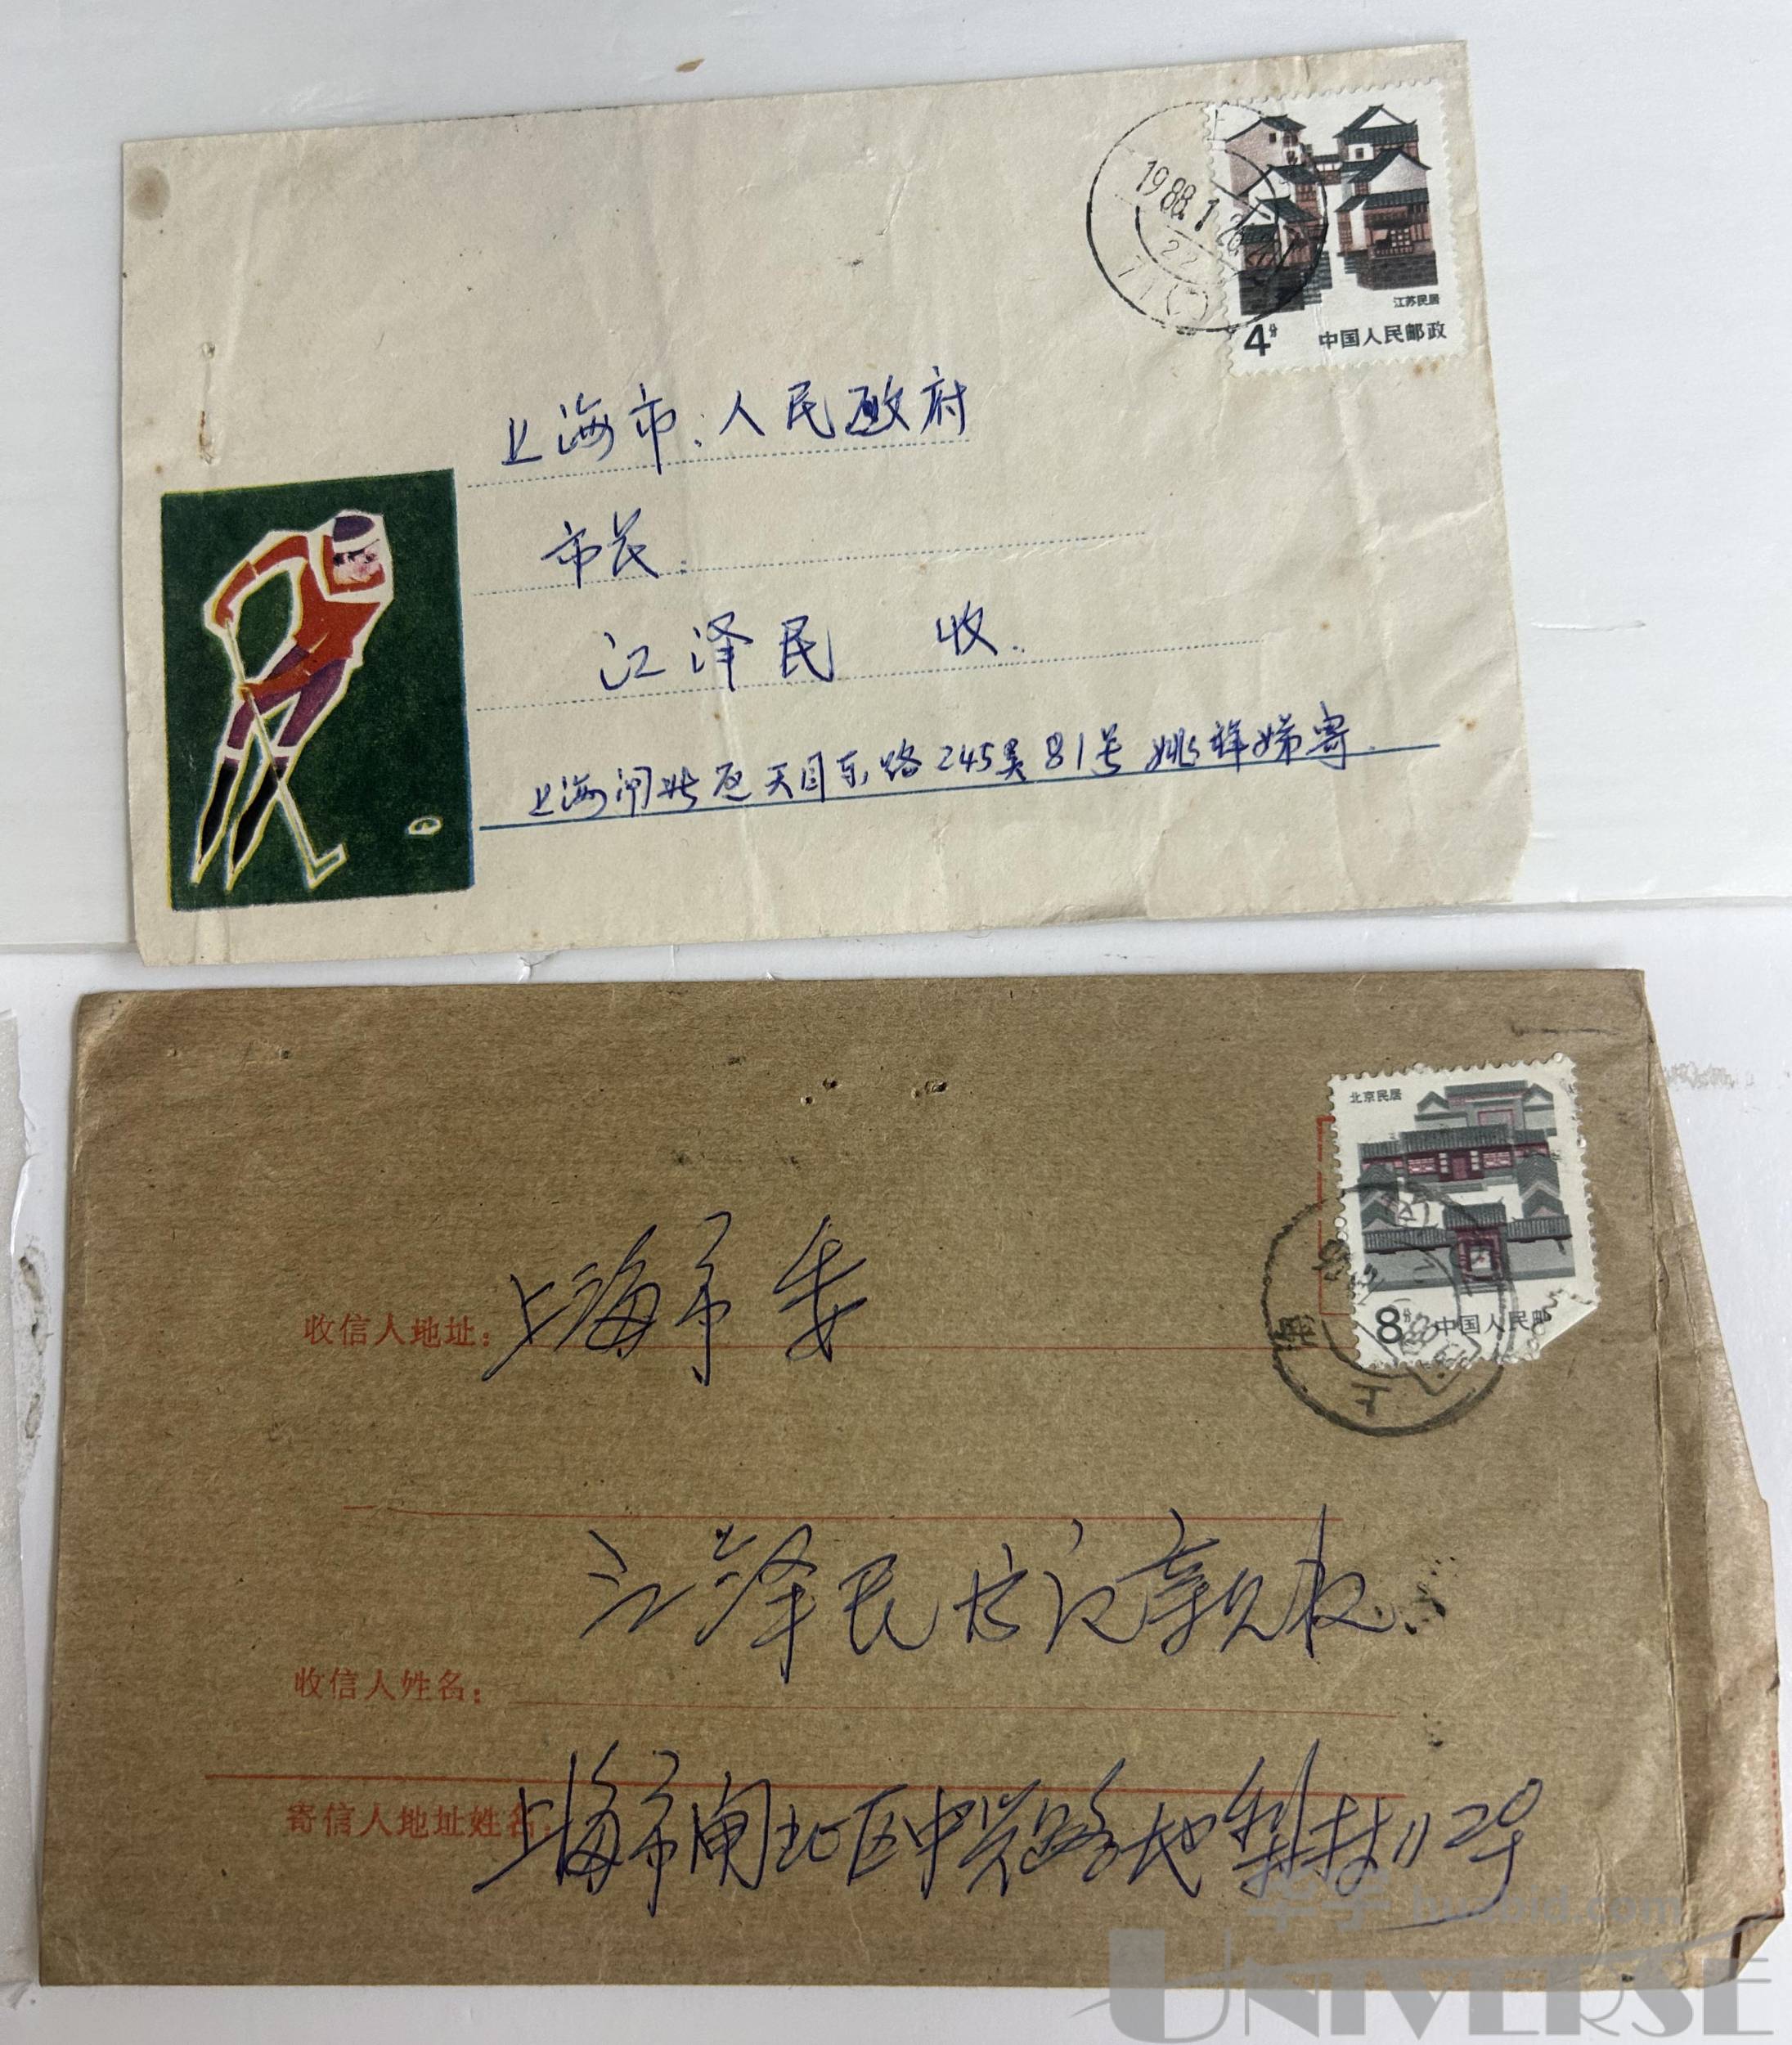 1988.1.26
22
江苏民居
4分 中国人民邮政
上海市:人民政府
市长:
江泽民 收.
上海闸北区天目东路245弄81号 姚祥娣寄.
北京民居
8分 中国人民邮
上
海
收信人地址: 上海市委
江泽民书记亲收.
收信人姓名:
寄信人地址姓名: 上海市闸北区中兴路地梨村112号
华宇 huabid.com
UNIVERSE